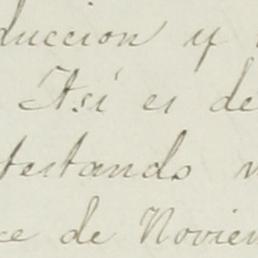 duccion y
Así es de
testando
ce de Noviem